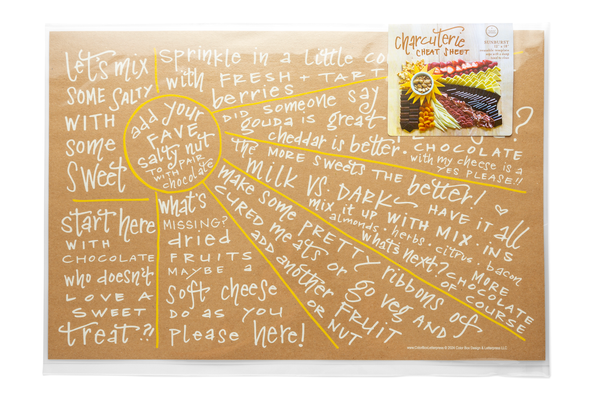 let's mix
SOME SALTY
WITH
some
sweet
sprinkle in a little co
with FRESH + TART
berries
charcuterie
CHEAT SHEET
SUNBURST
add your
FAVE
salty nut
TO PAIR
WITH
chocolate
DID someone say
gouda is great
?
cheddar is better.
CHOCOLATE
with my cheese is a
YES PLEASE!!
the MORE SWEETS the better!
milk VS. DARK HAVE IT all
mix it up WITH MIX-INS
almonds, herbs, citrus, bacon
what's next? MORE
CHOCOLATE
OF COURSE
make some PRETTY ribbons of
CURED meats or go veg AND
ADD another FRUIT
OR NUT
start here
WITH
CHOCOLATE
who doesn't
LOVE A
SWEET
treat?!
what's
MISSING?
dried
FRUITS
MAYBE a
soft cheese
DO AS YOU
please here!